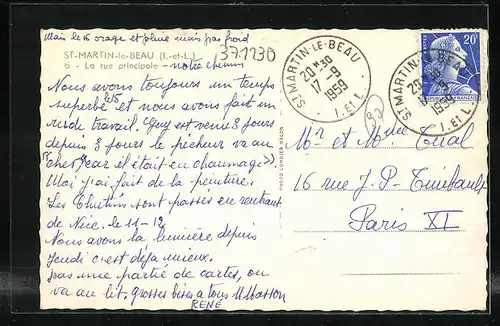 Mais le 16 orage et pluie mais pas froid
371230
ST-MARTIN-le-BEAU (I.-et-L.)
6 - La rue principale - notre chemin
Nous avons toujours un temps
superbe et nous avons fait un
rude travail. Guy est venu 3 jours
depuis 3 jours le pécheur va au
"cher" car il était en chaumage.
Moi j'ai fait de la peinture.
Les sont passés en rentrant
de Nice. le 11-12
Nous avons la lumière depuis
Jeudi c'est déja mieux.
pas une partie de cartes, on
va au lit. grosses bises a tous M Masson
RENÉ
PHOTO COMBIER MACON
ST-MARTIN-LE-BEAU
20 H30
17-9
1959
I. ET L.
20F
ST-MARTIN-LE-BEAU
17-9
1959
I. ET L.
Mr et Mme
16 rue J-P
Paris XI